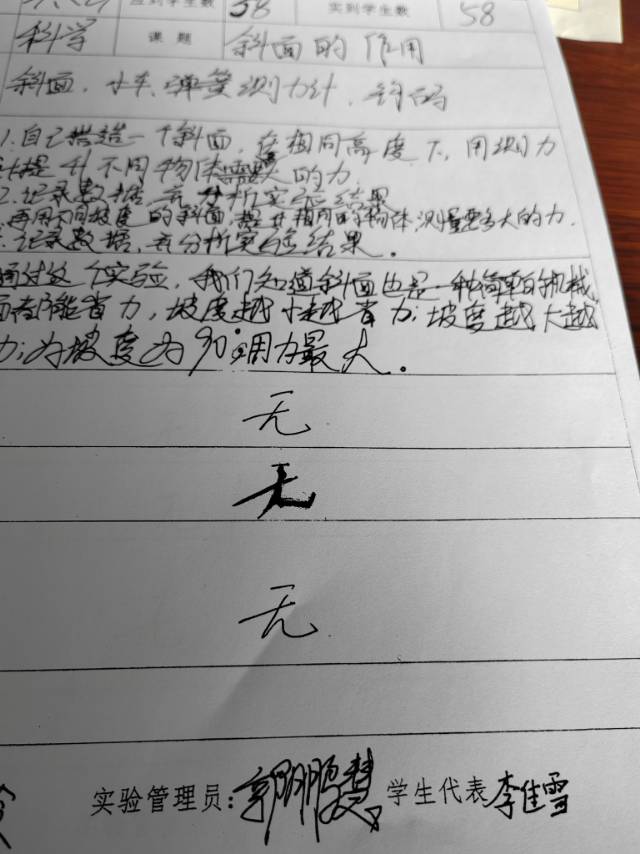 应到学生数 58 实到学生数 58
科学 课题 斜面的作用
斜面、小车、弹簧测力计、钩码
1.自己搭造一个斜面,在相同高度下,用测力
计提升不同物体需要的力
2.记录数据,并分析实验结果
再用不同坡度的斜面,提升相同的物体,测量要多大的力.
记录数据,并分析实验结果。
通过这个实验,我们知道斜面也是一种简单的机械,
面都能省力,坡度越小越省力;坡度越大越
力;为坡度为90°用力最大。
无
无
无
实验管理员: 学生代表 李佳雪